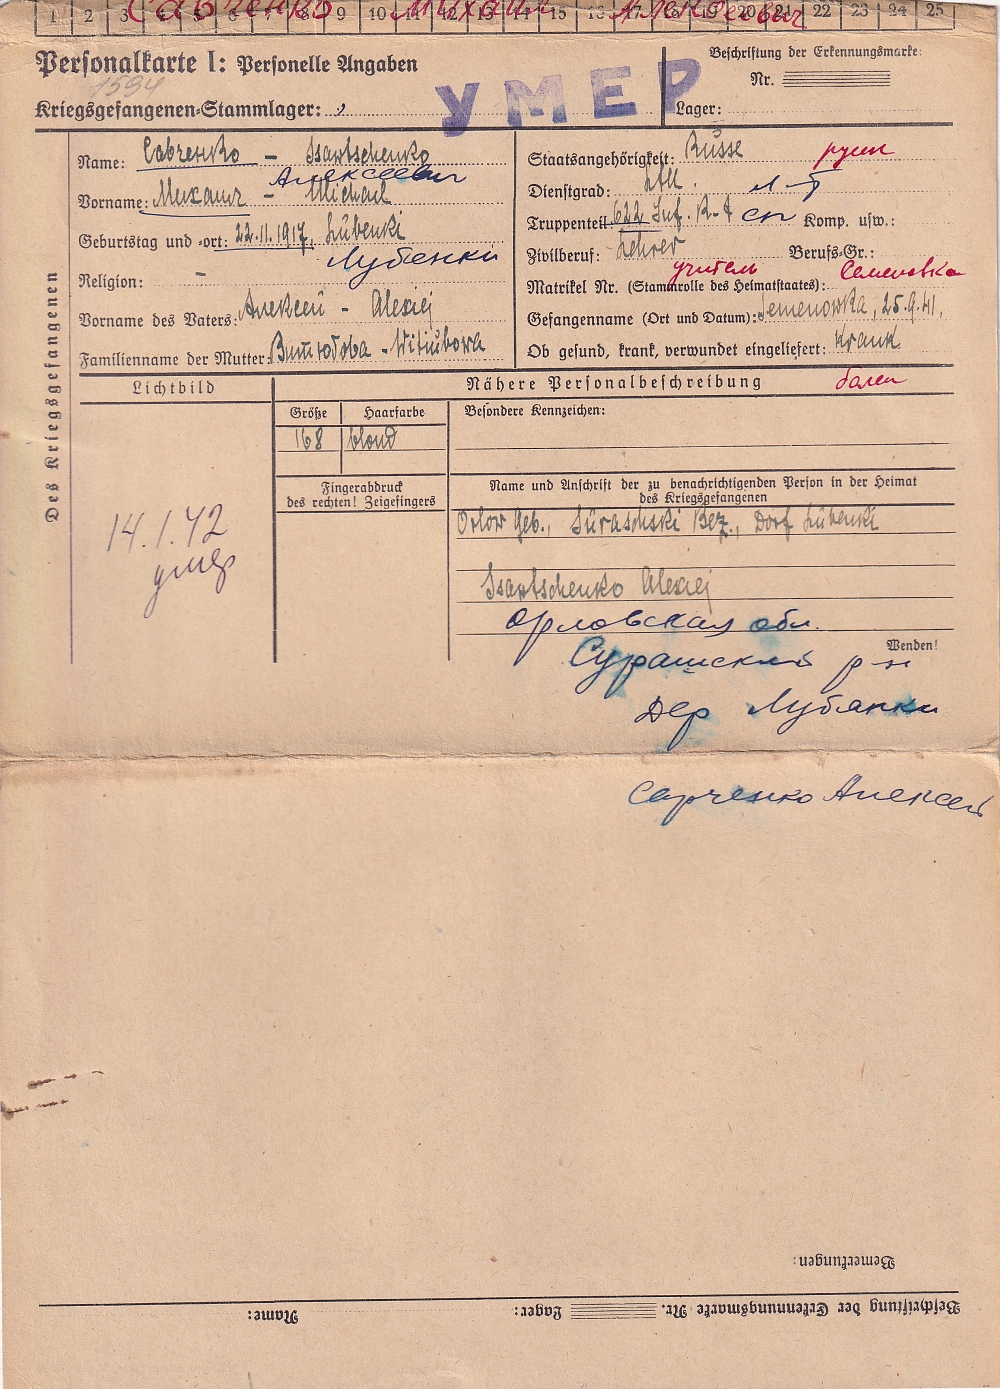 Савченко Михаил Алексеевич
1 2 3 4 5 6 7 8 9 10 11 12 13 14 15 16 17 18 19 20 21 22 23 24 25
Personalkarte I: Personelle Angaben
1594
Kriegsgefangenen-Stammlager:
УМЕР
Beschriftung der Erkennungsmarke:
Nr.
Lager:
Des Kriegsgefangenen
Name: Савченко - Ssawtschenko
Алексеевич
Vorname: Михаил - Michael
Geburtstag und -ort: 22.11.1917, Lübenki
Лубенки
Religion: -
Vorname des Vaters: Алексей - Alexiej
Familienname der Mutter:
Staatsangehörigkeit: Russe русск
Dienstgrad: Ltn. л-т
Truppenteil: 622 Inf. R-t сп Komp. usw.:
Zivilberuf: Lehrer Berufs-Gr.:
учитель Семеновка
Matrikel Nr. (Stammrolle des Heimatstaates):
Gefangenname (Ort und Datum): Semenowka, 25.9.41.
Ob gesund, krank, verwundet eingeliefert: krank
болен
Lichtbild
Nähere Personalbeschreibung
Größe Haarfarbe
168 blond
Besondere Kennzeichen:
Fingerabdruck
des rechten! Zeigefingers
Name und Anschrift der zu benachrichtigenden Person in der Heimat
des Kriegsgefangenen
Orlow Geb., Süraschski Bez., Dorf Lübenki
Ssawtschenko Alexiej
14.1.42
умер
Орловская обл.
Wenden!
Сурашский р-н
Дер Лубянки
Савченко Алексей
Bemerkungen:
Beschriftung der Erkennungsmarke Nr. Lager: Name: